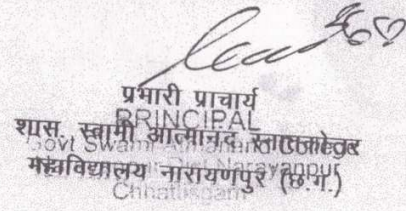 प्रभारी प्राचार्य
PRINCIPAL
शास. स्वामी आत्मानंद स्नातकोत्तर
Govt Swami College
महाविद्यालय नारायणपुर (छ.ग.)
Narayanpur
Chhattisgarh